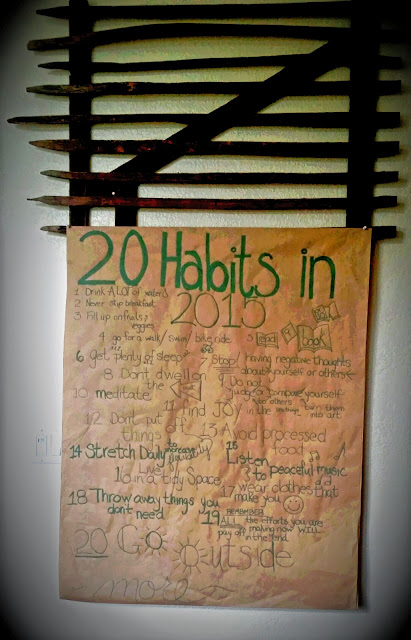 20 Habits in
2015
1 Drink A LOT of water
2 Never skip breakfast
3 Fill up on fruits &
veggies
4 go for a walk / swim / bike ride
5 Read
Book
6 Get plenty of sleep
7 Stop! having negative thoughts
about yourself or others
8 Don't dwell on
the
9 Do not
judge or compare yourself
to others
10 meditate
11 find JOY in the
turn them
into art
12 Don't put
things off
13 Avoid processed
food
14 Stretch Daily to increase
15 Listen to peaceful music
16 Live in a tidy Space
17 wear clothes that
make you
18 Throw away things you
don't need
19 REMEMBER
ALL the efforts you are
making now WILL
pay off in the end.
20 Go
Outside
more